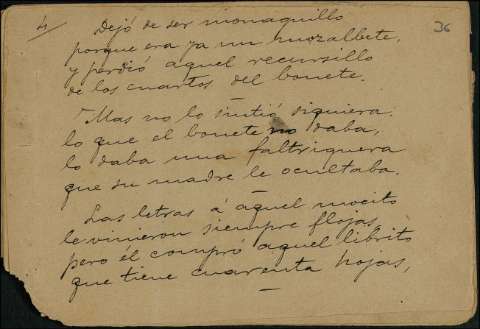 4
36
Dejó de ser monaguillo
porque era ya un mozalbete,
y perdió aquel recursillo
de los cuartos del bonete.
Mas no lo sintió siquiera:
lo que el bonete no daba,
lo daba una faltriquera
que su madre le ocultaba.
Las letras á aquel mocito
le vinieron siempre flojas
pero él compró aquel librito
que tiene cuarenta hojas,